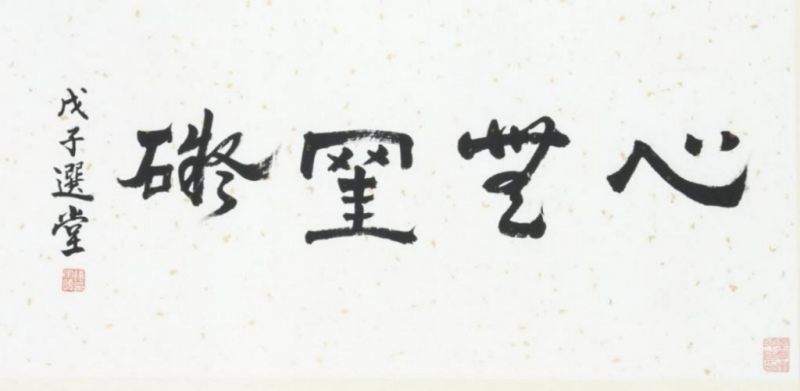 心無罣礙
戊子選堂